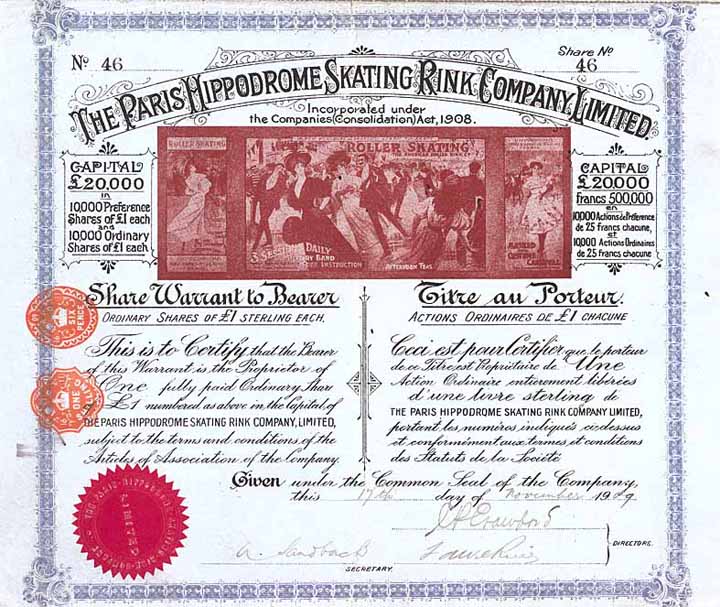 Nº 46
Share Nº 46
THE PARIS HIPPODROME SKATING RINK COMPANY, LIMITED
Incorporated under
the Companies (Consolidation) Act, 1908.
CAPITAL
£20,000
in
10,000 Preference
Shares of £1 each
and
10,000 Ordinary
Shares of £1 each
ROLLER SKATING
ROLLER SKATING
THE AMERICAN ROLLER RINK Cº
3 SESSIONS DAILY
MILITARY BAND
FREE INSTRUCTION
AFTERNOON TEAS
CAPITAL
£20,000
Francs 500,000
en
10,000 Actions de Préférence
de 25 francs chacune,
et
10,000 Actions Ordinaires
de 25 francs chacune
Share Warrant to Bearer
ORDINARY SHARES OF £1 STERLING EACH.
This is to Certify that the Bearer
of this Warrant is the Proprietor of
One fully paid Ordinary Share
of £1 numbered as above in the Capital of
THE PARIS HIPPODROME SKATING RINK COMPANY, LIMITED,
subject to the terms and conditions of the
Articles of Association of the Company.
Titre au Porteur.
ACTIONS ORDINAIRES DE £1 CHACUNE
Ceci est pour Certifier que le porteur
de ce Titre est Propriétaire de Une
Action Ordinaire entierement libérées
d'une livre sterling de
THE PARIS HIPPODROME SKATING RINK COMPANY, LIMITED,
portant les numéros indiqués ci-dessus
et conformément aux termes et conditions
des Statuts de la Société
SIX
PENCE
ONE
Given under the Common Seal of the Company,
this 17th day of November 1909.
THE PARIS HIPPODROME SKATING RINK COMPANY
LIMITED
A. Sandback
SECRETARY.
DIRECTORS.